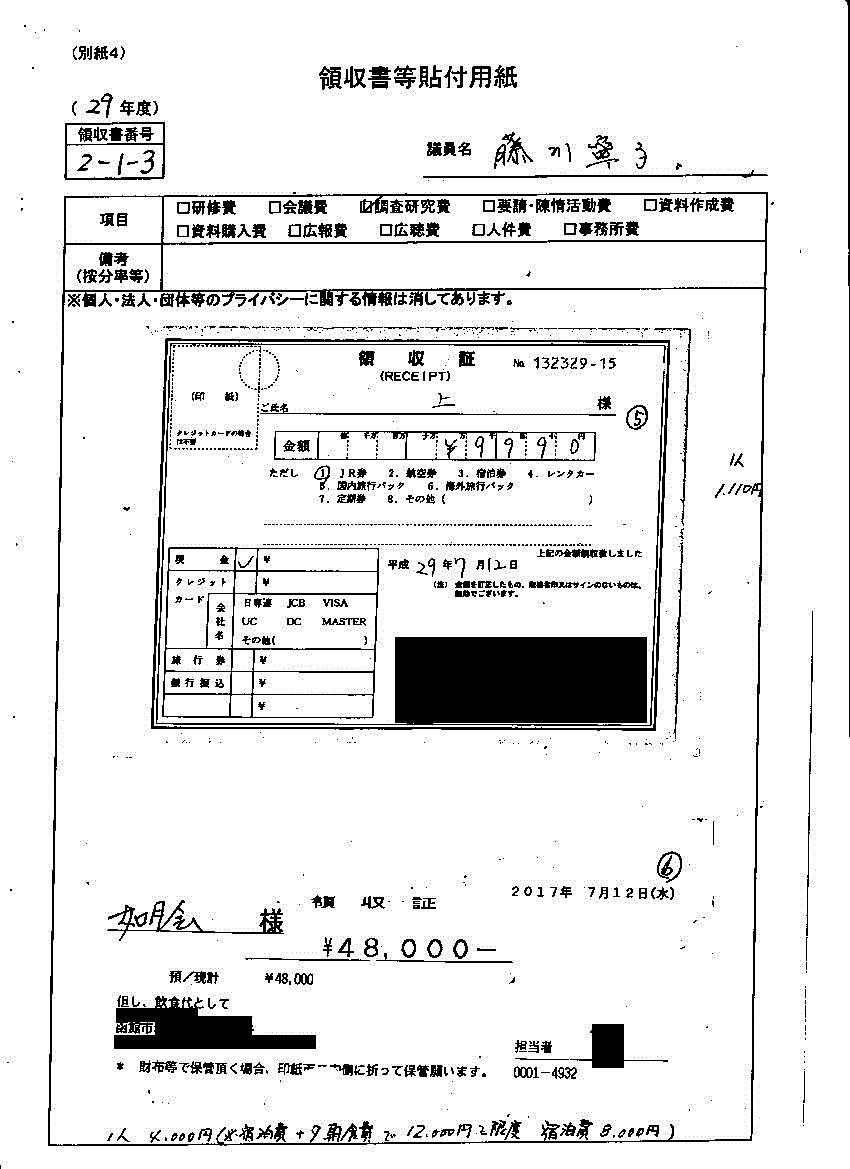 (別紙4)
領収書等貼付用紙
(29年度)
領収書番号
2-1-3
議員名 藤川寧子
項目
□研修費 □会議費 ☑調査研究費 □要請・陳情活動費 □資料作成費
□資料購入費 □広報費 □広聴費 □人件費 □事務所費
備考
(按分率等)
※個人・法人・団体等のプライバシーに関する情報は消してあります。
領収証 No. 132329-15
(RECEIPT)
(印 紙)
ご氏名 上 様
⑤
クレジットカードの場合
は不要
金額 億 千万 百万 十万 万 千 百 十 円
¥99990
1人
1,110円
ただし ① JR券 2. 航空券 3. 宿泊券 4. レンタカー
5. 国内旅行パック 6. 海外旅行パック
7. 定期券 8. その他( )
上記の金額領収致しました
平成29年7月12日
(注) 金額を訂正したもの、
無効でございます。
現金 ✓ ¥
クレジット ¥
カード 会社名
日専連 JCB VISA
UC DC MASTER
その他( )
旅行券 ¥
銀行振込 ¥
¥
⑥
2017年 7月12日(水)
領収証
様
¥48,000-
預/現計 ¥48,000
但し、飲食代として
函館市
担当者
* 財布等で保管頂く場合、印紙 側に折って保管願います。
0001-4932
1人 4,000円(※宿泊費+夕朝食費で12,000円を限度 宿泊費8,000円)